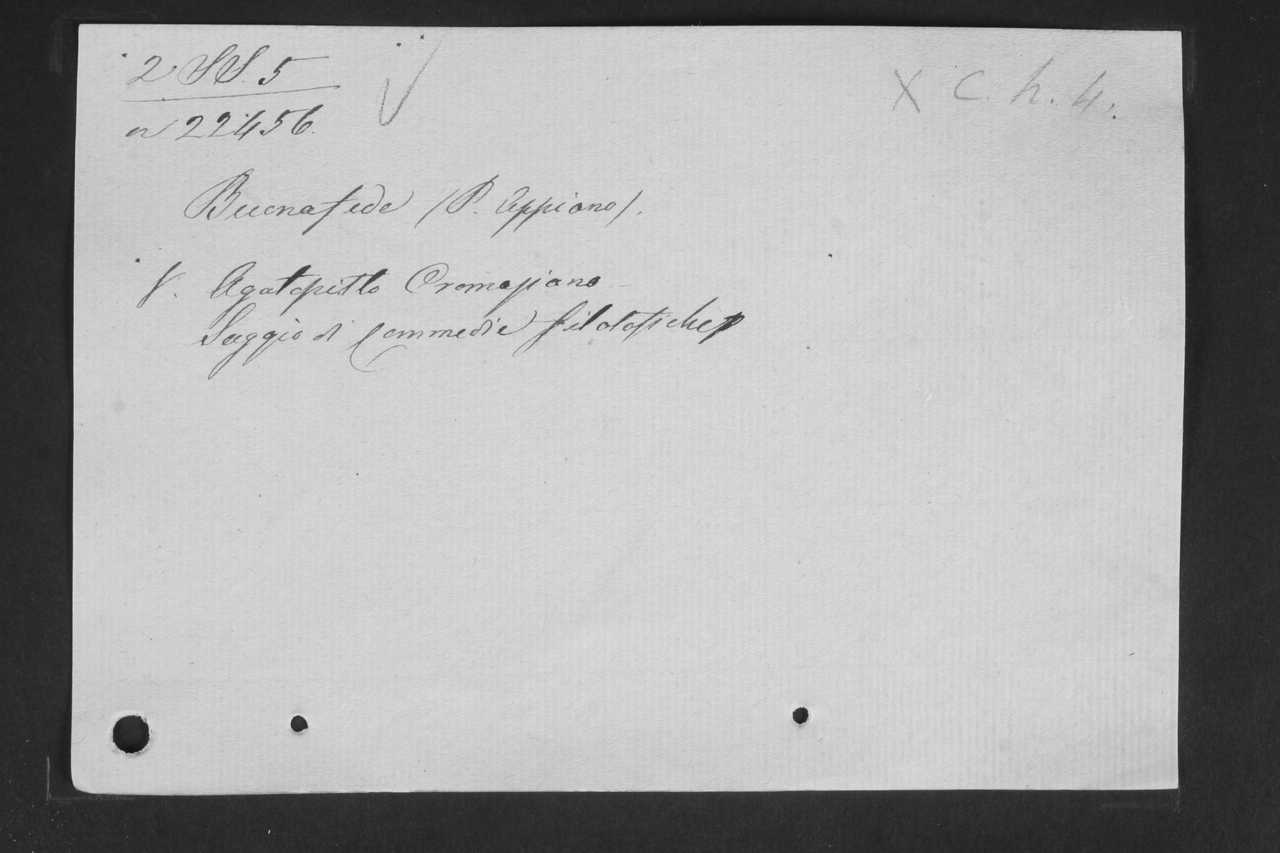 2 SS. 5
n 22456.
X C. h. 4.
Buonafede (P. Appiano).
V. Agatopisto Cromaziano
Saggio di Commedie filosofiche